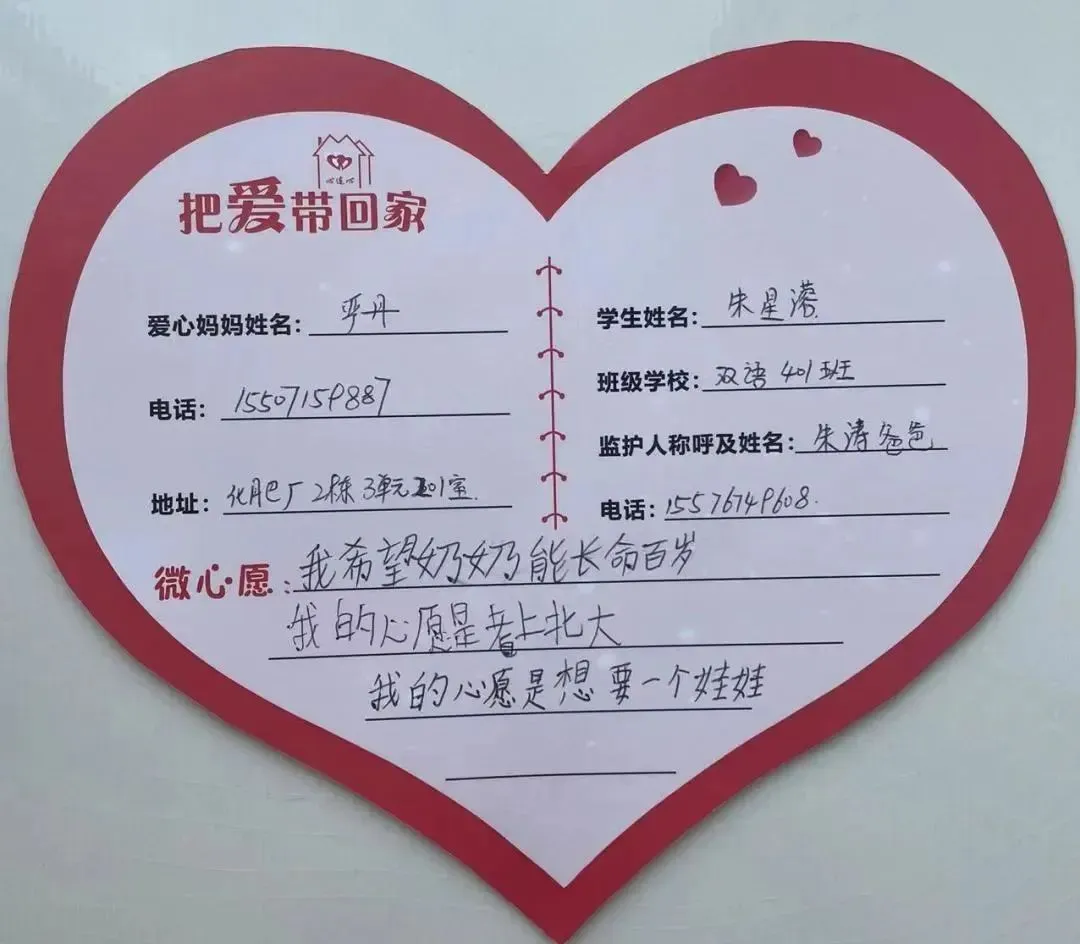 心连心
把爱带回家
爱心妈妈姓名: 严丹
电话: 15507159887
地址: 化肥厂2栋3单元201室.
学生姓名: 朱星
班级学校: 双语 401班
监护人称呼及姓名: 朱涛爸爸
电话: 15576749608.
微心愿: 我希望奶奶能长命百岁
我的心愿是考上北大
我的心愿是想要一个娃娃